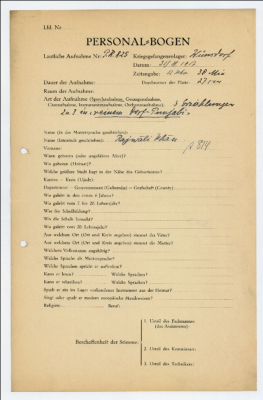 Lfd. Nr.
PERSONAL-BOGEN
Lautliche Aufnahme Nr.: P.K. 825 Kriegsgefangenenlager: Wünsdorf
Datum:
Zeitangabe:
Dauer der Aufnahme: Durchmesser der Platte: 27 cm
Raum der Aufnahme:
Art der Aufnahme (Sprechaufnahme, Gesangsaufnahme,
Choraufnahme, Instrumentenaufnahme, Orchesteraufnahme): 3 Erzählungen
Name (in der Muttersprache geschrieben):
Name (lateinisch geschrieben): Khan
Vorname:
Wann geboren (oder ungefähres Alter)?
Wo geboren (Heimat)?
Welche größere Stadt liegt in der Nähe des Geburtsortes?
Kanton – Kreis (Ujedz):
Department – Gouvernement (Gubernija) – Grafschaft (County):
Wo gelebt in den ersten 6 Jahren?
Wo gelebt vom 7. bis 20. Lebensjahr?
Was für Schulbildung?
Wo die Schule besucht?
Wo gelebt vom 20. Lebensjahr?
Aus welchem Ort (Ort und Kreis angeben) stammt der Vater?
Aus welchem Ort (Ort und Kreis angeben) stammt die Mutter?
Welchem Volksstamm angehörig?
Welche Sprache als Muttersprache?
Welche Sprachen spricht er außerdem?
Kann er lesen? Welche Sprachen?
Kann er schreiben? Welche Sprachen?
Spielt er ein im Lager vorhandenes Instrument aus der Heimat?
Singt oder spielt er modern europäische Musikweisen?
Religion: Beruf:
1. Urteil des Fachmannes
(des Assistenten):
Beschaffenheit der Stimme:
2. Urteil des Kommissars:
3. Urteil des Technikers: